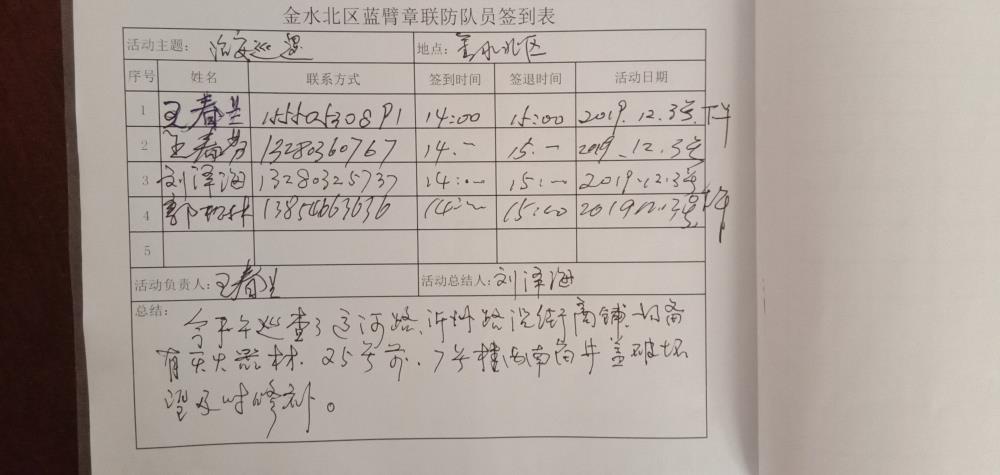 金水北区蓝臂章联防队员签到表
活动主题: 治安巡逻 地点: 金水北区
序号 姓名 联系方式 签到时间 签退时间 活动日期
1 王春 14:00 15:00 2019.12.3号 下午
2 王春 13280360767 14.— 15.— 2019.12.3号
3 刘泽海 13280325737 14:— 15:— 2019.12.3号
4 郭 13854663636 14:— 15:00 2019.12.3号 下午
5
活动负责人: 王春 活动总结人: 刘泽海
总结: 今下午巡查了 河路、沂州路沿街商铺、
有灭火器材. 25号前.7号楼 南 井盖破坏
望及时修补。